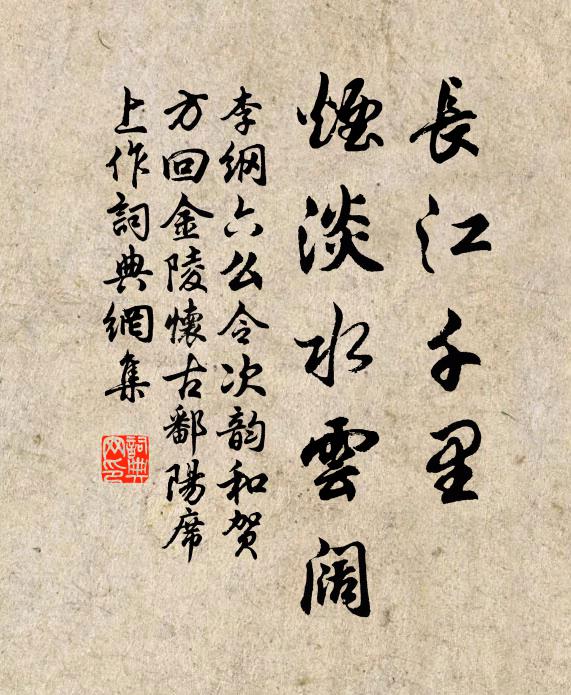 長江千里
煙淡水雲闊
李綱六幺令次韵和贺
方回金陵懷古鄱陽席
上作詞典網集
詞典
网印